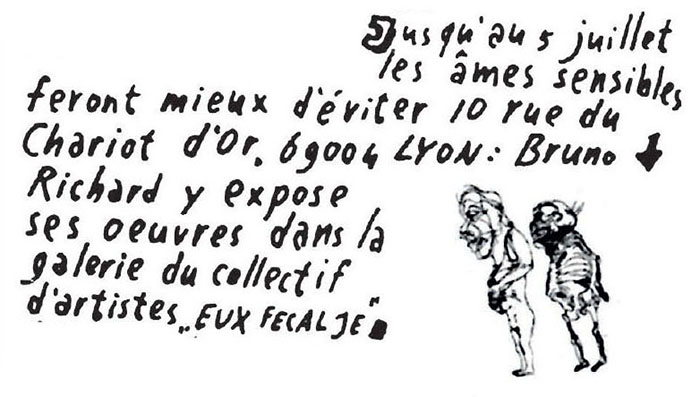 Jusqu'au 5 juillet
les âmes sensibles
feront mieux d'éviter 10 rue du
Chariot d'Or, 69004 LYON: Bruno
Richard y expose
ses oeuvres dans la
galerie du collectif
d'artistes „EUX FECAL JE".